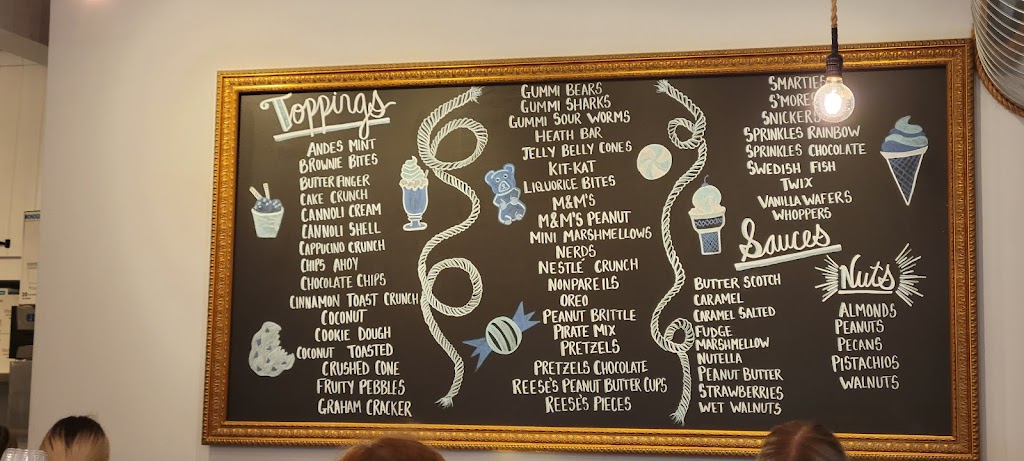 Toppings
ANDES MINT
BROWNIE BITES
BUTTERFINGER
CAKE CRUNCH
CANNOLI CREAM
CANNOLI SHELL
CAPPUCINO CRUNCH
CHIPS AHOY
CHOCOLATE CHIPS
CINNAMON TOAST CRUNCH
COCONUT
COOKIE DOUGH
COCONUT TOASTED
CRUSHED CONE
FRUITY PEBBLES
GRAHAM CRACKER
GUMMI BEARS
GUMMI SHARKS
GUMMI SOUR WORMS
HEATH BAR
JELLY BELLY CONES
KIT-KAT
LIQUORICE BITES
M&M'S
M&M'S PEANUT
MINI MARSHMELLOWS
NERDS
NESTLÉ CRUNCH
NONPAREILS
OREO
PEANUT BRITTLE
PIRATE MIX
PRETZELS
PRETZELS CHOCOLATE
REESE'S PEANUT BUTTER CUPS
REESE'S PIECES
SMARTIES
S'MORES
SNICKERS
SPRINKLES RAINBOW
SPRINKLES CHOCOLATE
SWEDISH FISH
TWIX
VANILLA WAFERS
WHOPPERS
Sauces
BUTTER SCOTCH
CARAMEL
CARAMEL SALTED
FUDGE
MARSHMELLOW
NUTELLA
PEANUT BUTTER
STRAWBERRIES
WET WALNUTS
Nuts
ALMONDS
PEANUTS
PECANS
PISTACHIOS
WALNUTS